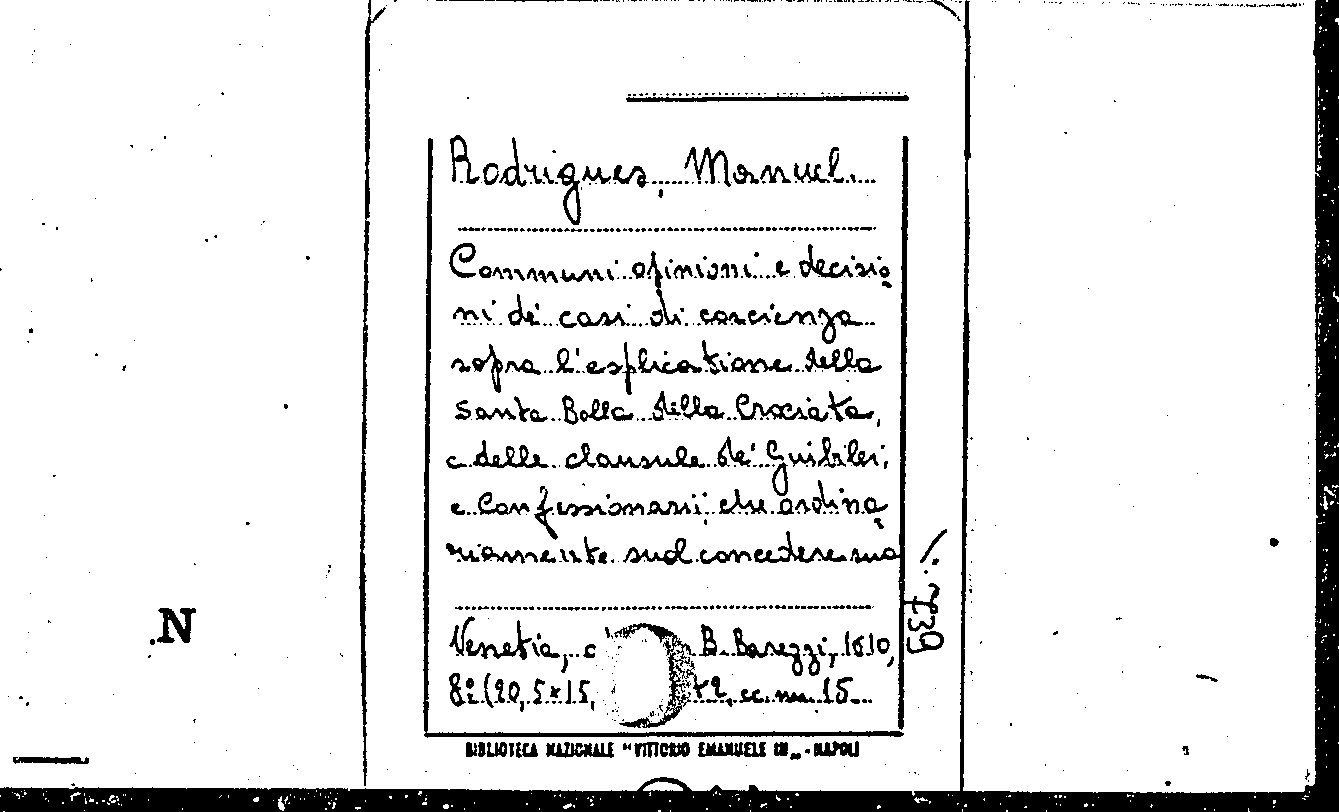 Rodrigues, Manuel.
Communi opinioni e decisio
ni de' casi di coscienza
sopra l'esplicatione della
Santa Bolla della Crociata,
e delle clausule de' Guibilei,
e Confessionarii, che ordina
riamente suol concedere sua
Venetia, B. Barezzi, 1610,
8º (20,5×15, cc. nn. 15
N
739
BIBLIOTECA NAZIONALE "VITTORIO EMANUELE III„ - NAPOLI